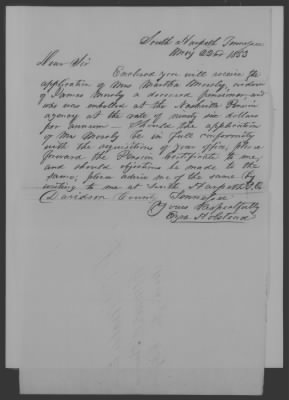 South Harpeth Tennessee
May 22nd 1853
Dear Sir
Enclosed you will receive the
application of Mrs Martha Mosely, widow
of James Mosely a deceased pensioner and
who was enrolled at the Nashville Pension
agency at the rate of ninety six dollars
per annum — Should the application
of Mrs Mosely be in full conformity
with the requisitions of your office, please
forward the Pension Certificate to me,
and should objections be made to the
same; please advise me of the same by
writing to me at South Harpeth P.O.
Davidson County Tennessee
Yours Respectfully